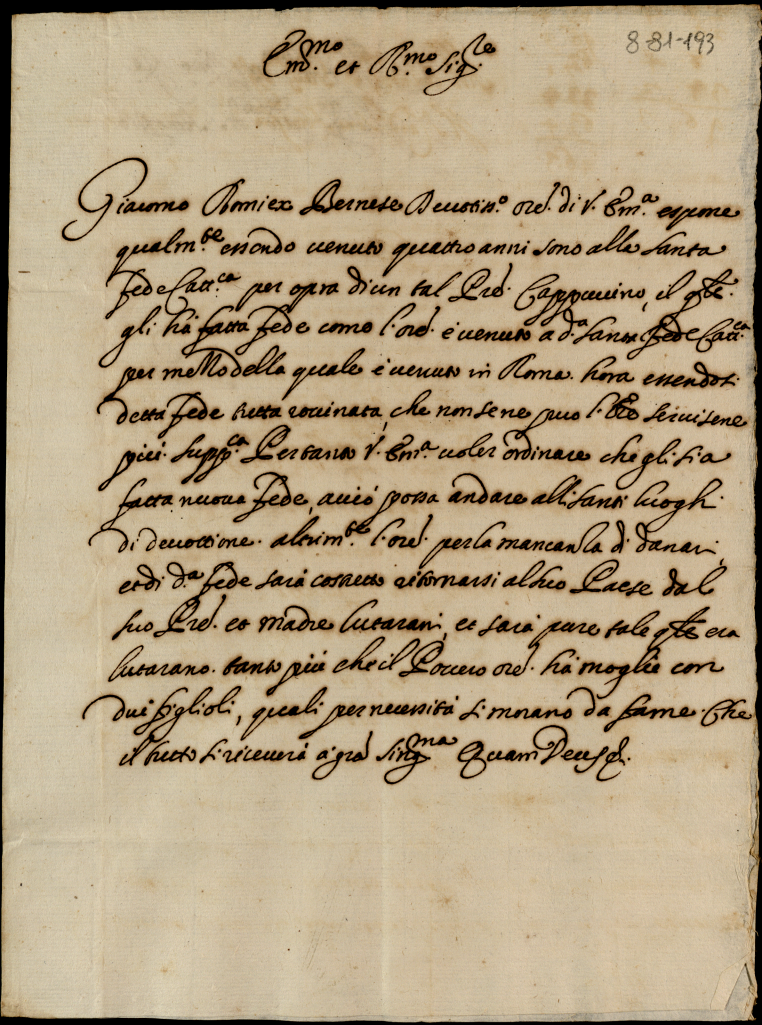 8-81-193
Em.mo et R.mo Sig.re
Giacomo Romiex Bernese Devotiss.o ore. di V. Em.a espone
qualm.te essendo venuto quattro anni sono alla Santa
fede Catt.ca per opra di un tal Pre. Cappuccino, il qle.
gli hà fatta fede como l'ore. è venuto a d.a Santa fede Catt.ca
per mezzo della quale è venuto in Roma. hora essendosi
detta fede tutta rovinata, che non se ne puo l' servirsene
più. Supp.ca Pertanto V. Em.a voler ordinare che gli sia
fatta nuova fede, acciò possa andare alli Santi luoghi
di devottione. altrim.te l'ore. per la mancanza di danari,
et di d.a fede sarà costretto ritornarsi al suo Paese dal
suo Pre. et madre lutarani, et sarà pure tale qle era
lutarano. tanto più che il Povero ore. hà moglie con
dui figlioli, quali per necessità si morano da fame. Che
il tutto si riceverà a gra. Sing.ma Quam Deus &.